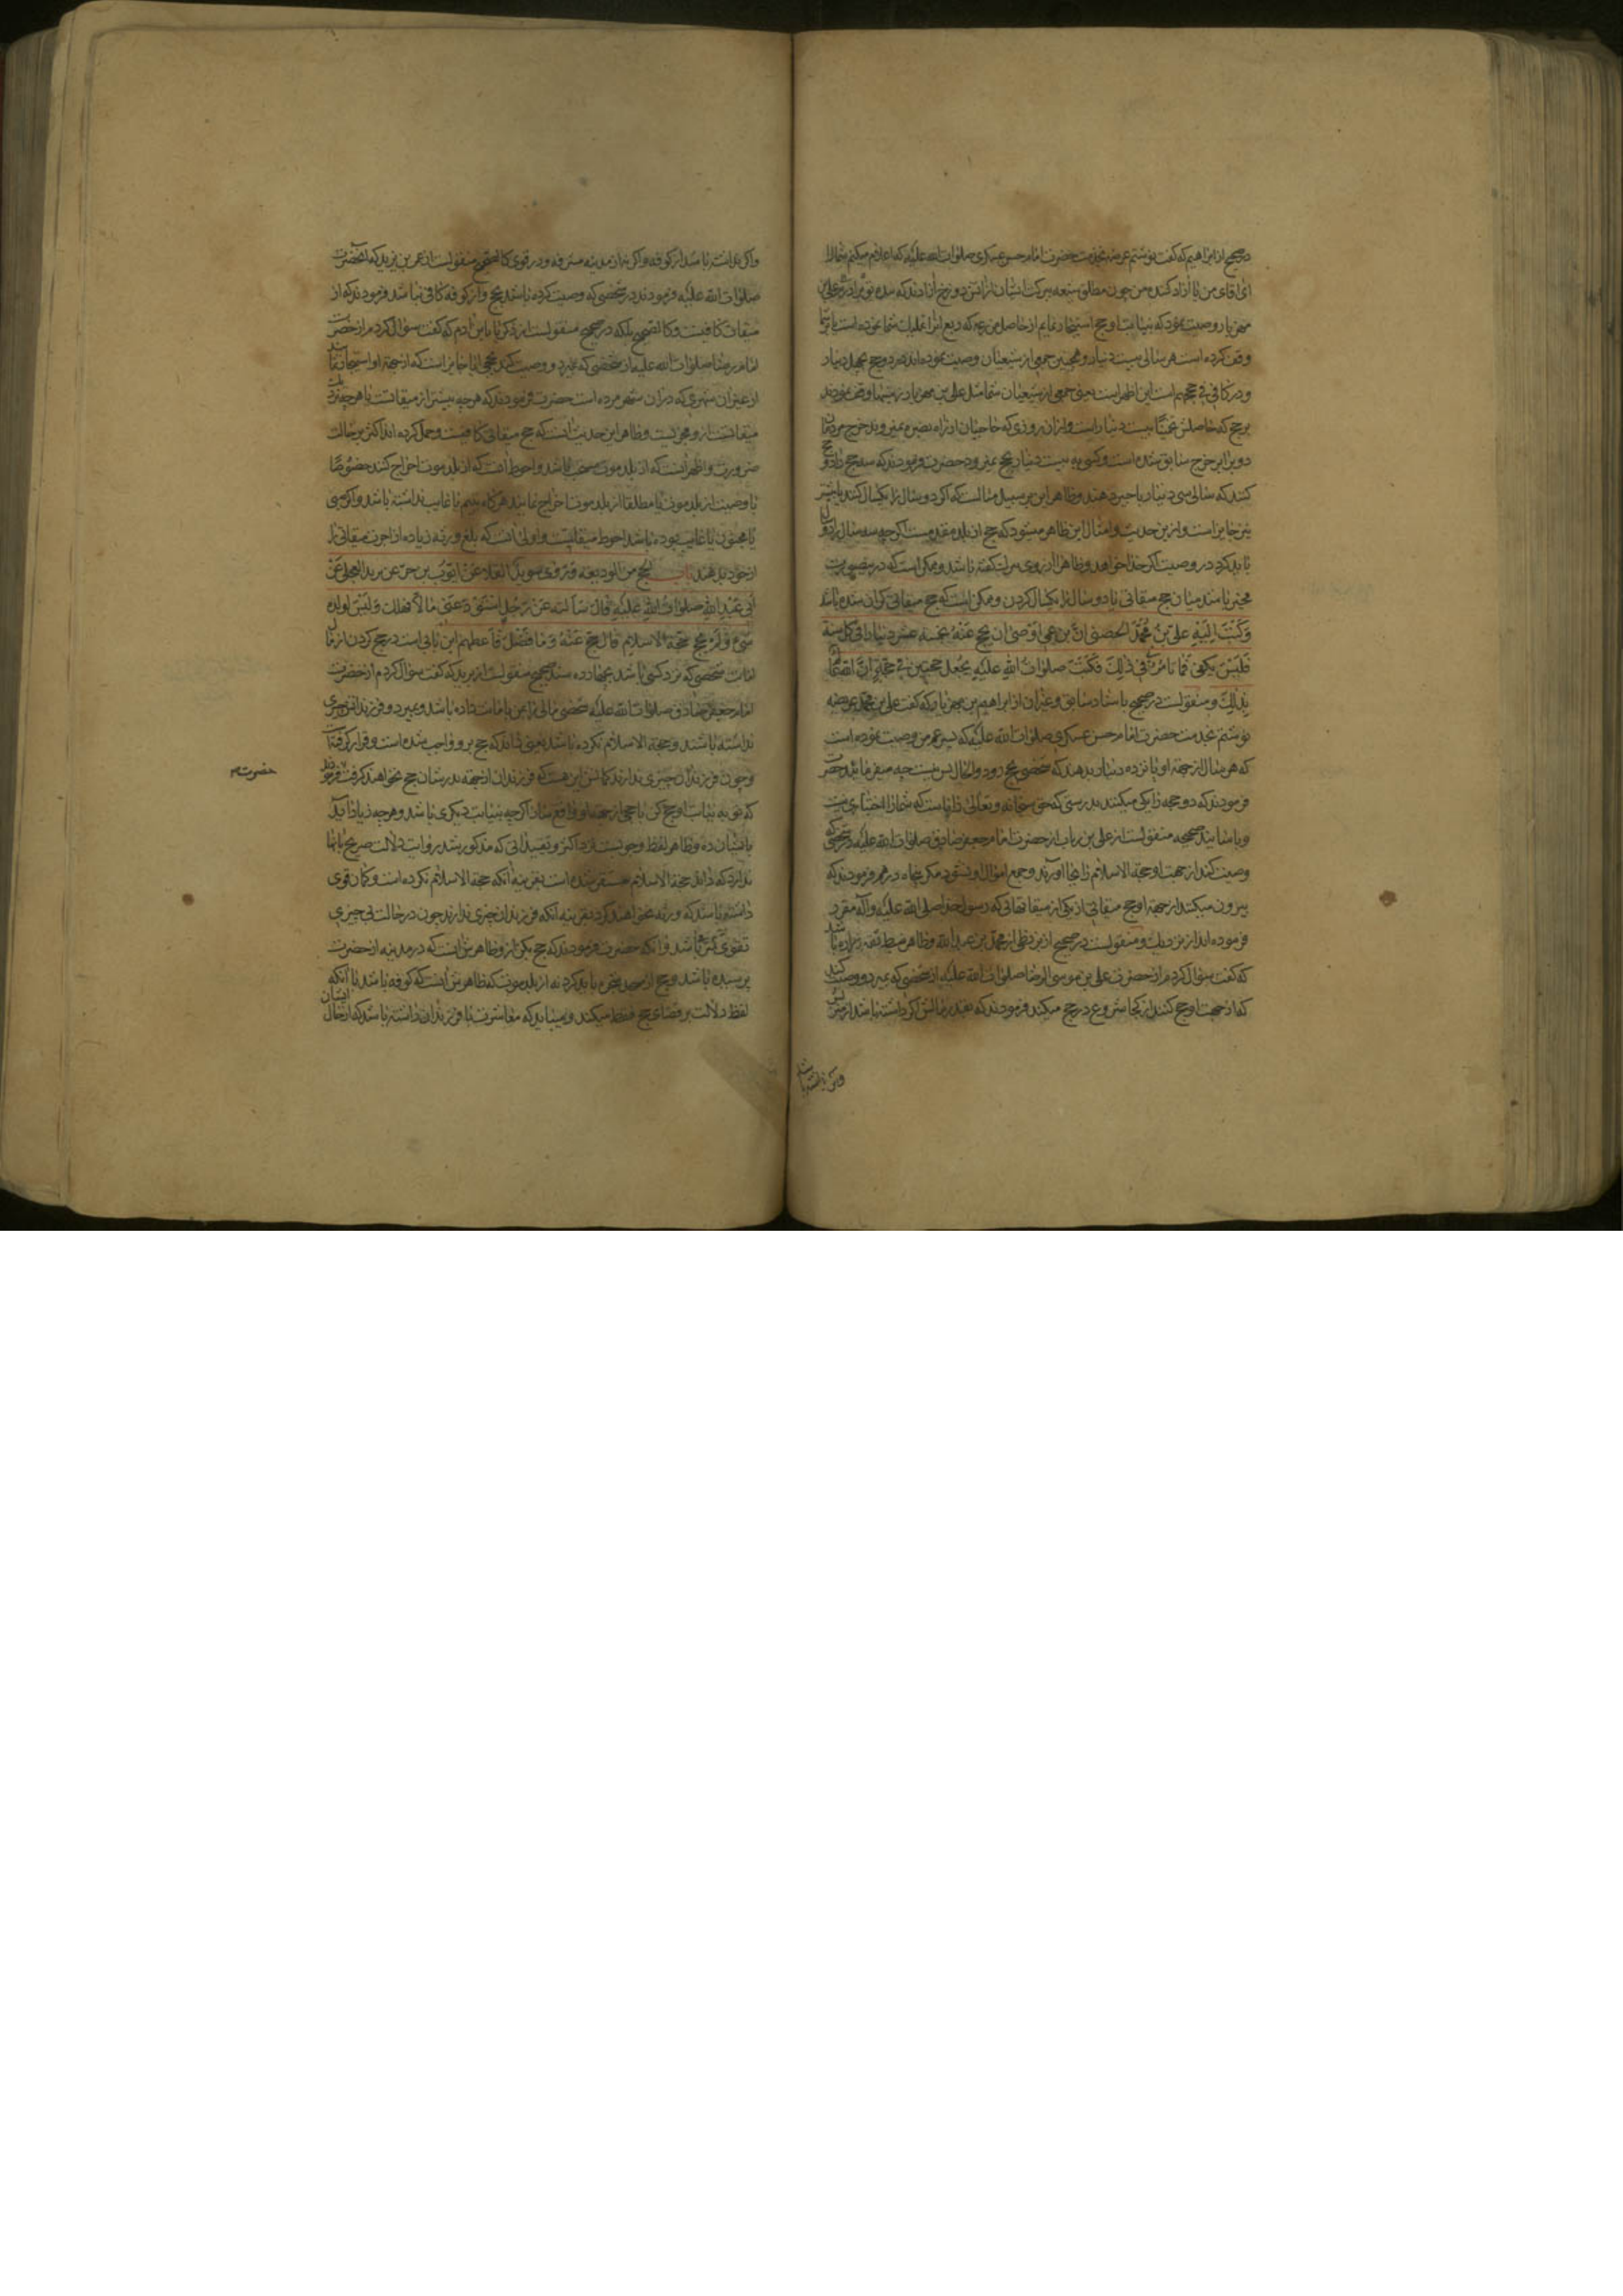 در صحیح از ابراهیم که گفت نوشتم عریضه بخدمت حضرت امام حسن عسکری صلوات الله علیه که اعلام میکنم شما را
ای اقای من یا ازاد کننده من چون مطلق شیعه ببرکت ایشان از اتش دوزخ ازادند که بنده تو برادرم علی بن
مهزیار وصیت نمود که بنیابت او حج استیجار نمایم از حاصل مزرعه که ربع انرا غلیات شما نموده است یا بر شما
وقف کرده است هر سالی بیست دینار و همچنین جمعی از شیعیان وصیت نموده‌اند در دو حج بچهل دینار
و در کافی فی حجهم است این اظهر است یعنی جمعی از شیعیان شما مثل علی بن مهزیار زمینها وقف نمودند
بر حج که حاصلش تخمینا بیست دینار است و از ان روزی که حاجیان از راه بصره نمیروند خرج مردمان
دو برابر خرج سابق شده است و کسی به بیست دینار بحج نمیرود حضرت فرمودند که سه حج را دو حج
کنند که سالی سی دینار باجیر دهند و ظاهرا این بر سبیل مثالست که اگر دو سال را یکسال کنند یا بیشتر
نیز جایز است و ازین حدیث و امثال این ظاهر میشود که حج از بلد مقدمست اگر چه سه سال را دو سال
باید کرد در وصیت اگر خدا خواهد و ظاهرا از روی سر لنکفته باشد و ممکن است که درینصورت
مخیر باشند میان حج میقاتی یا دو سال را یکسال کردن و ممکن است که حج میقاتی گران شده باشد
وَکَتَبَ اِلَیْهِ عَلیُّ بْنُ مُحَمَّدٍ الحصینی انَّ بن عمی اَوْصیٰ ان یحج عَنْهُ بخمسة عشر دینارا فی کل سنة
فَلَیْسَ یکفی فَمٰا تَأمُرُنی فی ذٰلِكَ فَکَتَبَ صلوٰات اللهِ علیهِ یَجْعَل حجتین فی حجّةٍ انَّ الله عٰالمٌ
بِذٰلِكَ و منقولست در صحیح باسناد سابق و غیر ان از ابراهیم بن مهزیار که گفت علی بن محمد عریضه
نوشتم بخدمت حضرت امام حسن عسکری صلوات الله علیه که پسر عم من وصیت نموده است
که هر سال از جهة او پانزده دینار بدهند که شخصی بحج رود و الحال بس نیست چه میفرمائید حضرت
فرمودند که دو حجه را یکی میکنند بدرستی که حق سبحانه و تعالی داناست که شما را اختیاری نیست
و باسانید صحیحه منقولست از علی بن رباب از حضرت امام جعفر صادق صلوات الله علیه در شخصی که
وصیت کند از جهت او حجة الاسلام را بجا اورند و جمیع اموال او نشود مگر پنجاه درهم فرمودند که
بیرون میکنند از جهة او حج میقاتی از یکی از میقاتهائی که رسول خدا صلی الله علیه و آله مقرر
فرموده‌اند از نزدیك و منقولست در صحیح از بزنطی از محمد بن عبد الله و ظاهر ضبط ثقه زراره باشد
که گفت سؤال کردم از حضرت علی بن موسی الرضا صلوات الله علیه از شخصی که بمیرد و وصیت کند
که از جهت او حج کنند از کجا شروع در حج میکند فرمودند که بقدر مالش اگر داشته باشد از منزلش
واگر نداشته باشد از کوفه و اگر نه از مدینه مشرفه و در قوی کالصحیح منقولست از عمر بن یزید که انحضرت
صلوات الله علیه فرمودند در شخصی که وصیت کرده باشد بحج و از کوفه کافی نباشد فرمودند که از
میقات کافیست و کالصحیح بلکه در صحیح منقولست از زکریا بن ادم که گفت سؤال کردم از حضرت
امام رضا صلوات الله علیه از شخصی که بمیرد و وصیت کند بحجی ایا جایز است که از جهة او استیجار نمایند
از غیر ان شهری که در ان شهر مرده است حضرت فرمودند که هر چه پیشتر از میقاتست یا هر چه نزدیك
میقاتست ازو مجزیست و ظاهر این حدیث انست که حج میقاتی کافیست و حمل کرده‌اند اکثر بر حالت
ضرورت و اظهر انست که از بلد موت مستحب باشد و احوط انست که از بلد موت اخراج کنند خصوصا
با وصیت از بلد موت یا مطلقا از بلد موت اخراج نمایند هر گاه یتیم یا غایب نداشته باشد و اگر صبی
یا مجنون یا غایب بوده باشد احوط میقاتیست و اولی انست که بلغ ورثه زیاده از اجرت میقاتی را
از خود بدهند باب الحج من الودیعه وَ رَوٰی سوید القلا عَنْ اَیّوب بن حرّ عن برید العجلی عَنْ
أبی عَبْدِ اللهِ صلوٰاتُ اللهِ عَلَیْهِ قٰالَ سَألته عَنْ رَجُلٍ اسْتَوْدَعَنیٖ مٰالاً فهلك وَ لَیْسَ لولده
شیء وَ لَمْ یَحجّ حجّة الاسلامِ قٰالَ حجّ عَنْهُ وَ مٰا فَضُلَ فَأعطهم این بابی است در حج کردن از مال
امانت شخصی که نزد کسی باشد بچهارده سند صحیح منقولست از برید که گفت سؤال کردم از حضرت
امام جعفر صادق صلوات الله علیه شخصی مالی را بمن بامانت داده باشد و بمیرد و فرزندانش چیزی
نداشته باشند و حجة الاسلام نکرده باشد یعنی داند که حج برو واجب شده است و قرار گرفته است
و چون فرزندان چیزی ندارند گمانش این هست که فرزندان از جهة پدرشان حج نخواهند گرفت فرمودند
حضرت
که تو به نیابت او حج کن یا حجی از جهة او واقع ساز اگر چه بنیابت دیگری باشد و هر چه زیاد اید
باایشان ده و ظاهر لفظ وجوبست نزد اکثر و تقییداتی که مذکور شد روایت دلالت صریح بانها
ندارد که داند حجة الاسلام مستقر شده است بقرینه آنکه حجة الاسلام نکرده است و گمان قوی
داشته باشد که ورثه نخواهند کرد بقرینه انکه فرزندان چیزی ندارند چون در حالت بی چیزی
تقوی کمتر باشد و انکه حضرت فرمودند که حج بکن از و ظاهرش انست که در مدینه از حضرت
پرسیده باشد و حج از محل مقرر باید کرد نه از بلد موت که ظاهرش انست که کوفه باشد با آنکه
لفظ دلالت بر قضای حج فقط میکند و میباید که معاشرت با فرزندان داشته باشد که از حال ایشان
واگر نداشته باشد